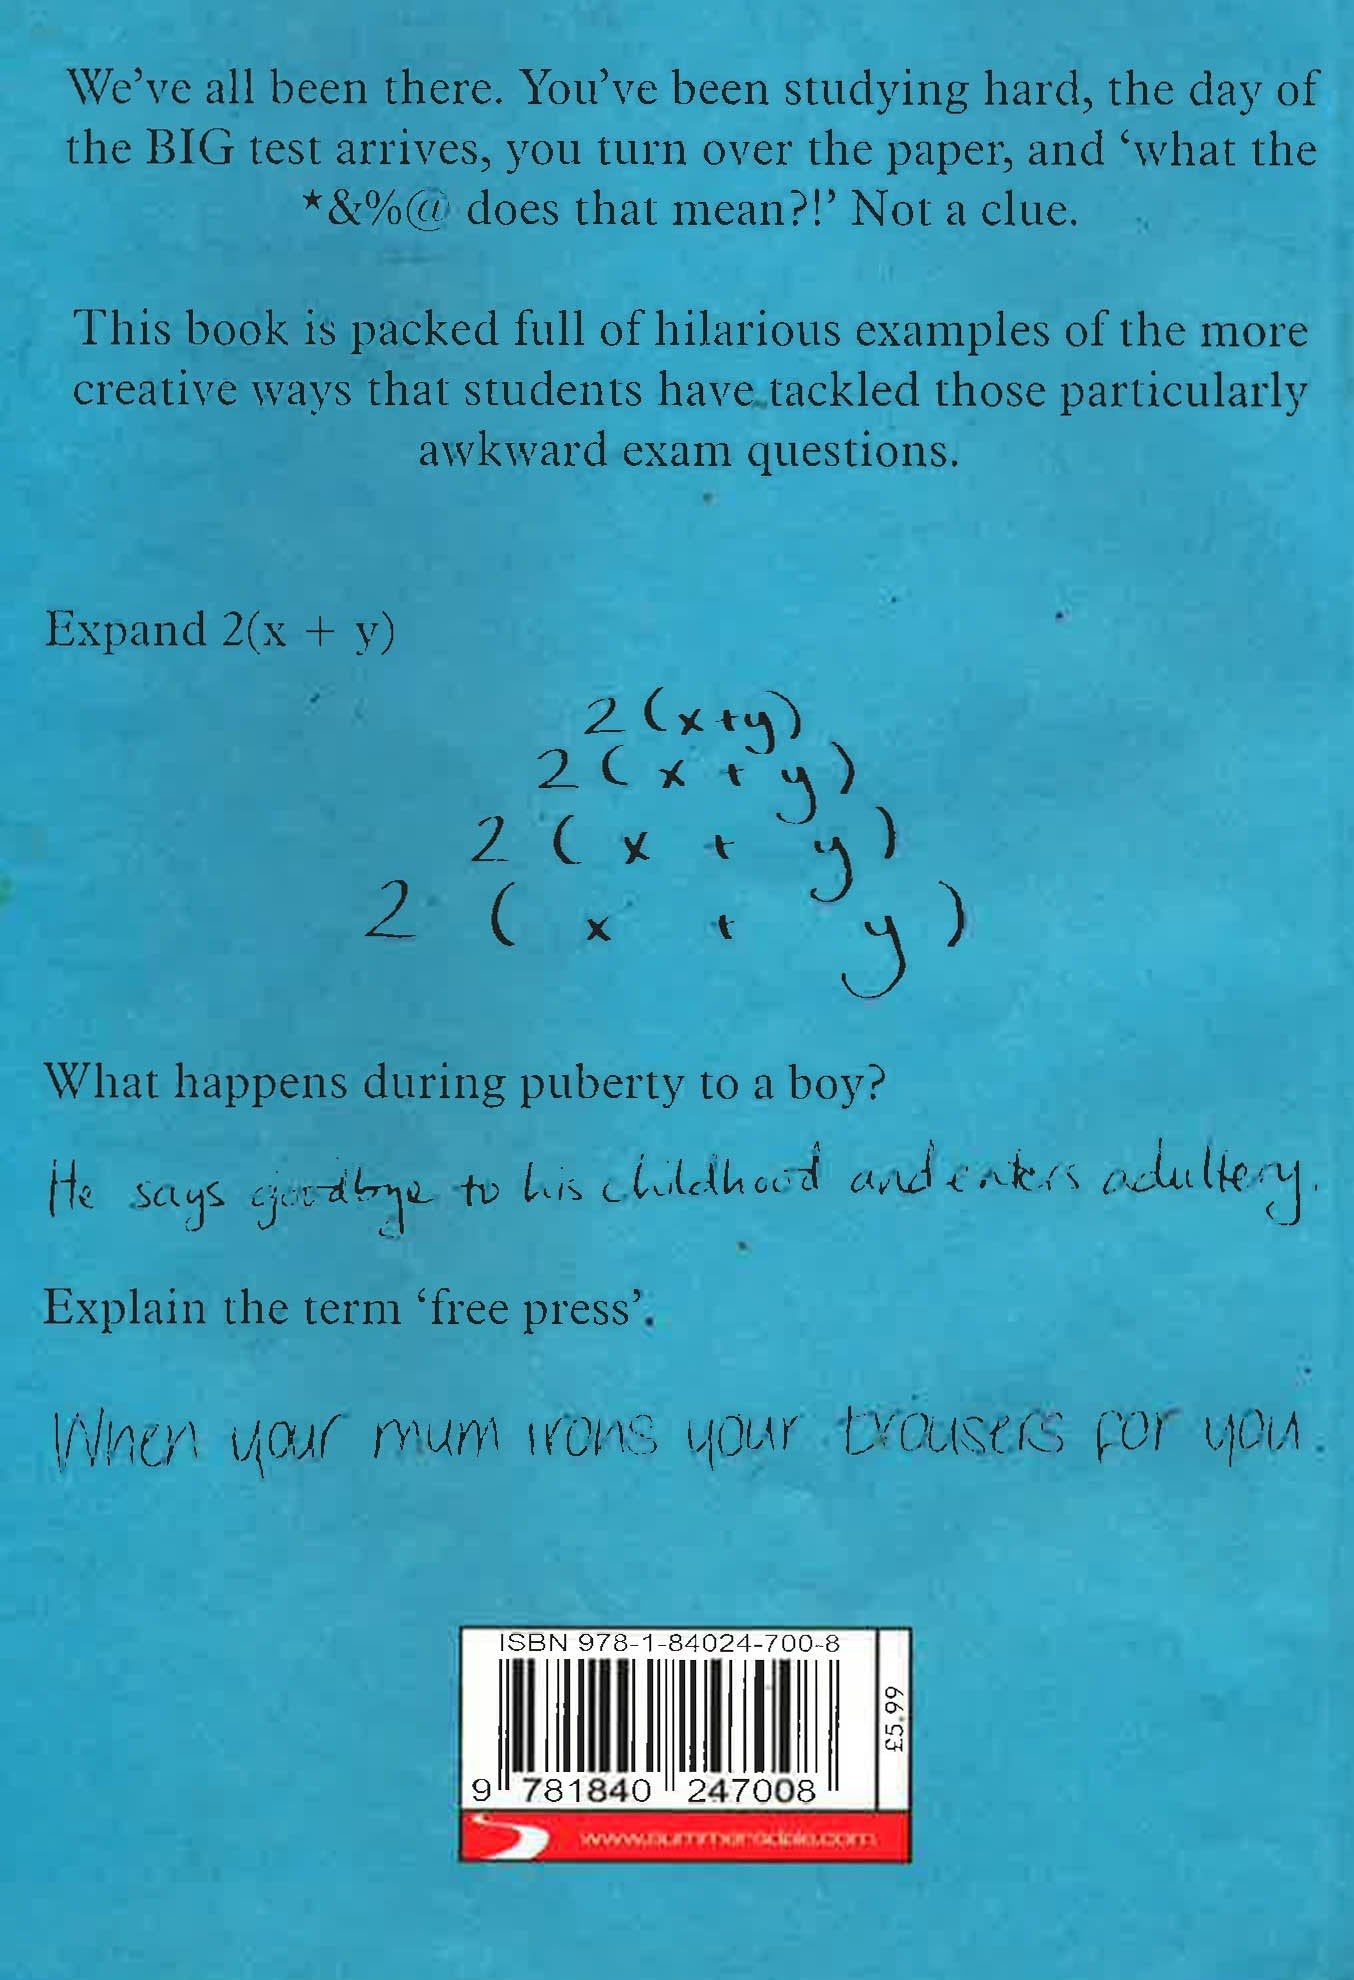 We've all been there. You've been studying hard, the day of
the BIG test arrives, you turn over the paper, and ‘what the
*&%@ does that mean?!’ Not a clue.
This book is packed full of hilarious examples of the more
creative ways that students have tackled those particularly
awkward exam questions.
Expand 2(x + y)
2(x+y)
2(x+y)
2(x+y)
2(x+y)
What happens during puberty to a boy?
He says goodbye to his childhood and enters adultery.
Explain the term ‘free press’.
When your mum irons your trousers for you.
ISBN 978-1-84024-700-8
£5.99
9 781840 247008
www.summersdale.com